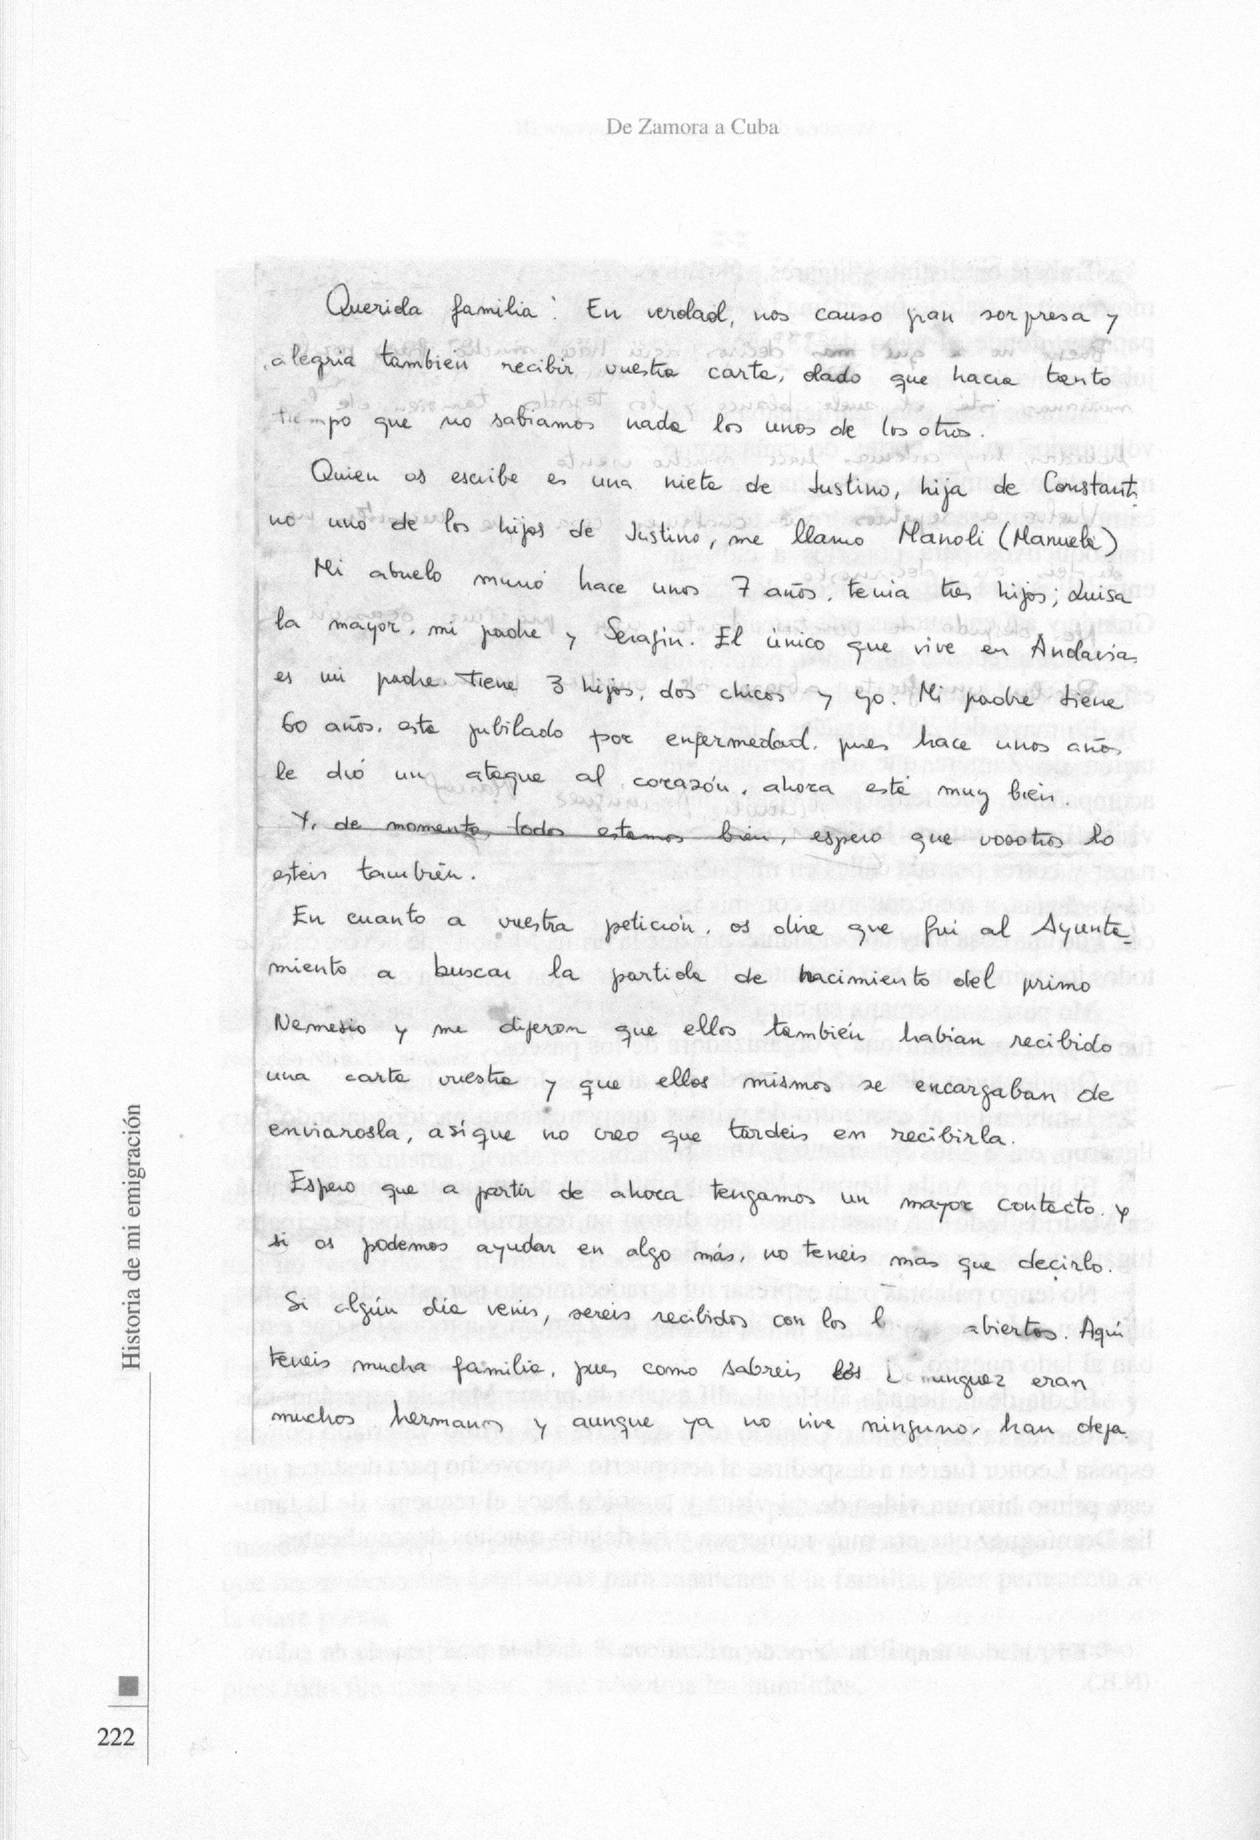 De Zamora a Cuba
Querida familia: En verdad, nos causo gran sorpresa y
alegria también recibir vuestra carta, dado que hacia tanto
tiempo que no sabiamos nada los unos de los otros.
Quien os escribe es una nieta de Justino, hija de Constanti
no uno de los hijos de Justino, me llamo Manoli (Manuela)
Mi abuelo murió hace unos 7 años, tenia tres hijos; Luisa
la mayor, mi padre y Serafin. El único que vive en Andavias
es mi padre tiene 3 hijos, dos chicos y yo. Mi padre tiene
60 años, esta jubilado por enfermedad, pues hace unos años
le dió un ataque al corazón, ahora esté muy bien
Y, de momento, todos estamos bien, espero que vosotros lo
esteis también.
En cuanto a vuestra petición, os dire que fui al Ayunta_
miento a buscar la partida de nacimiento del primo
Nemesio y me dijeron que ellos también habian recibido
una carta vuestra y que ellos mismos se encargaban de
enviarosla, asi que no creo que tardeis en recibirla.
Espero que a partir de ahora tengamos un mayor contacto. y
si os podemos ayudar en algo más, no teneis mas que decirlo.
Si algún dia venis, sereis recibidos con los b abiertos. Aqui
teneis mucha familia, pues como sabreis los Dominguez eran
muchos hermanos y aunque ya no vive ninguno, han deja
Historia de mi emigración
222